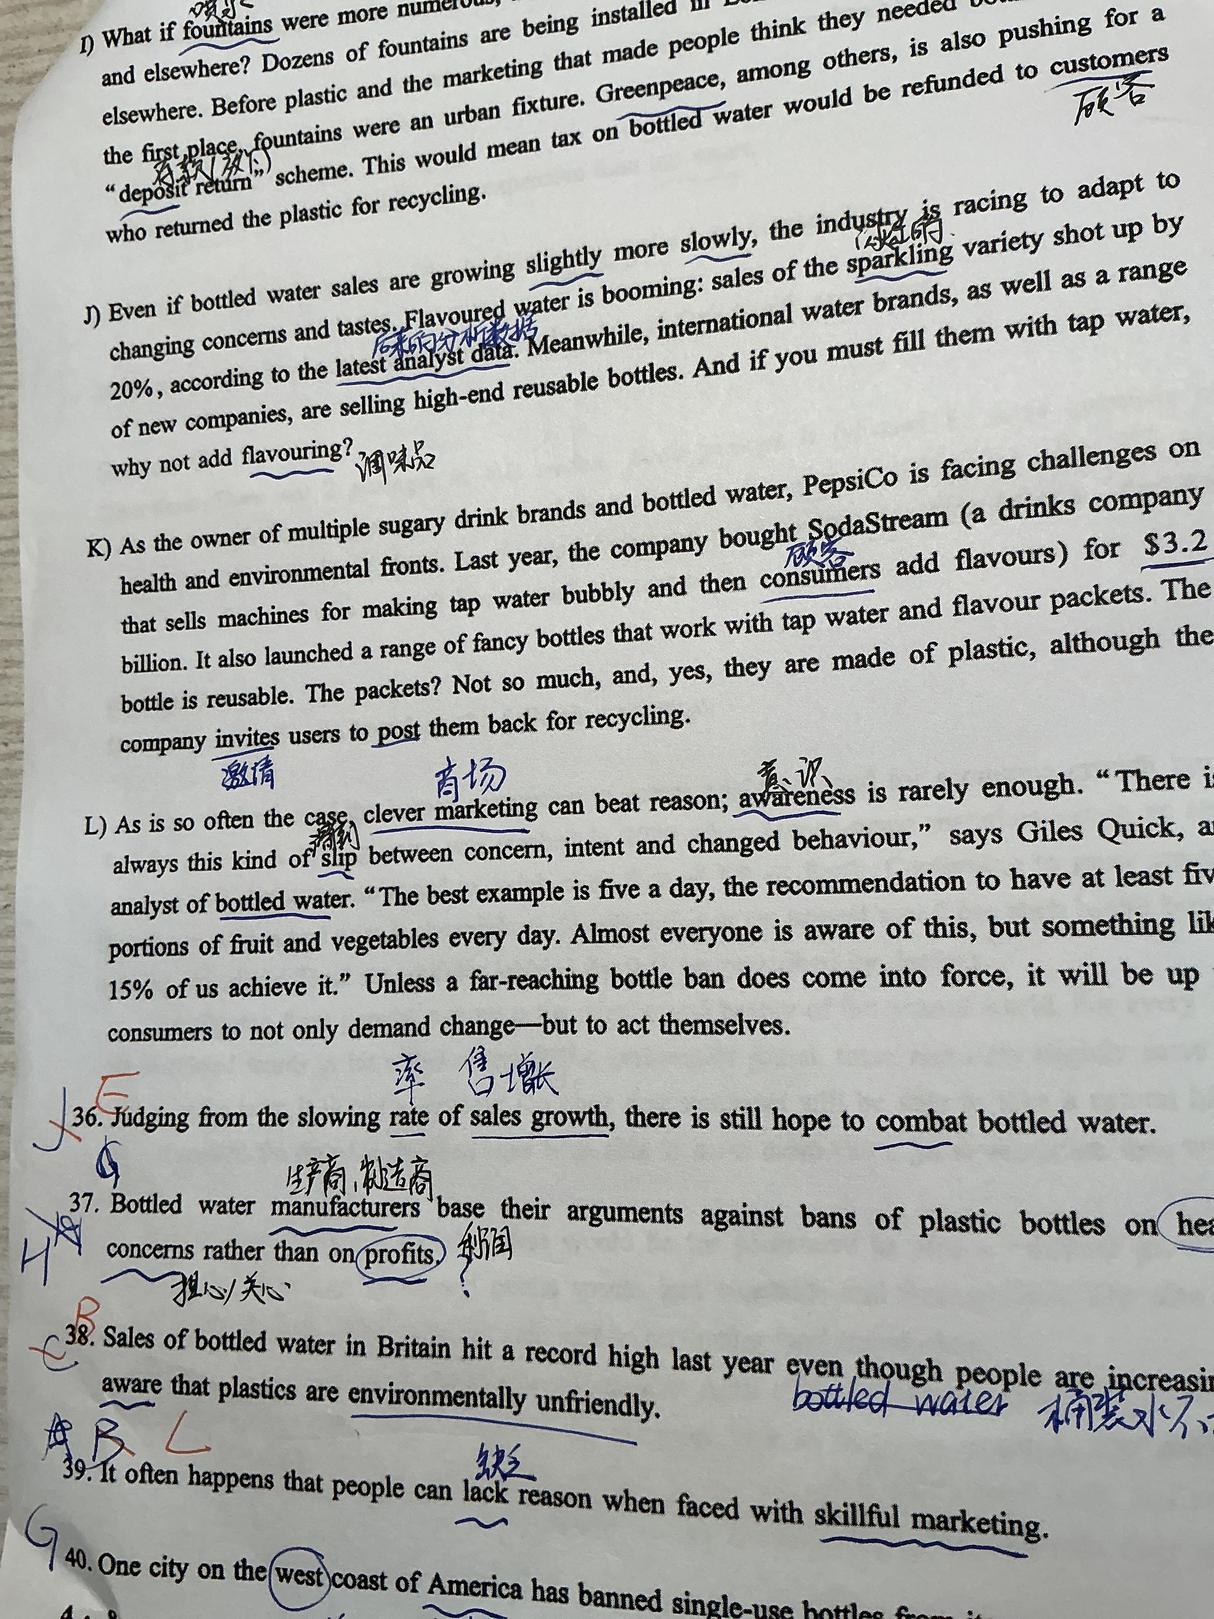 喷水
I) What if fountains were more numerous,
and elsewhere? Dozens of fountains are being installed in
elsewhere. Before plastic and the marketing that made people think they needed
the first place, fountains were an urban fixture. Greenpeace, among others, is also pushing for a
存款(放下)
"deposit return" scheme. This would mean tax on bottled water would be refunded to customers
顾客
who returned the plastic for recycling.
J) Even if bottled water sales are growing slightly more slowly, the industry is racing to adapt to
changing concerns and tastes. Flavoured water is booming: sales of the sparkling variety shot up by
后来的分析数据
20%, according to the latest analyst data. Meanwhile, international water brands, as well as a range
of new companies, are selling high-end reusable bottles. And if you must fill them with tap water,
why not add flavouring?
调味品
K) As the owner of multiple sugary drink brands and bottled water, PepsiCo is facing challenges on
health and environmental fronts. Last year, the company bought SodaStream (a drinks company
顾客
that sells machines for making tap water bubbly and then consumers add flavours) for $3.2
billion. It also launched a range of fancy bottles that work with tap water and flavour packets. The
bottle is reusable. The packets? Not so much, and, yes, they are made of plastic, although the
company invites users to post them back for recycling.
邀请
商场
意识
L) As is so often the case, clever marketing can beat reason; awareness is rarely enough. "There is
always this kind of slip between concern, intent and changed behaviour," says Giles Quick, an
analyst of bottled water. "The best example is five a day, the recommendation to have at least five
portions of fruit and vegetables every day. Almost everyone is aware of this, but something like
15% of us achieve it." Unless a far-reaching bottle ban does come into force, it will be up
consumers to not only demand change—but to act themselves.
率 售增长
J E
36. Judging from the slowing rate of sales growth, there is still hope to combat bottled water.
G
生产商,制造商
37. Bottled water manufacturers base their arguments against bans of plastic bottles on hea
H
concerns rather than on profits.
利润
?
担心/关心
B
C
38. Sales of bottled water in Britain hit a record high last year even though people are increasin
aware that plastics are environmentally unfriendly.
bottled water 桶装水不
B L
缺乏
39. It often happens that people can lack reason when faced with skillful marketing.
G
40. One city on the west coast of America has banned single-use bottles from